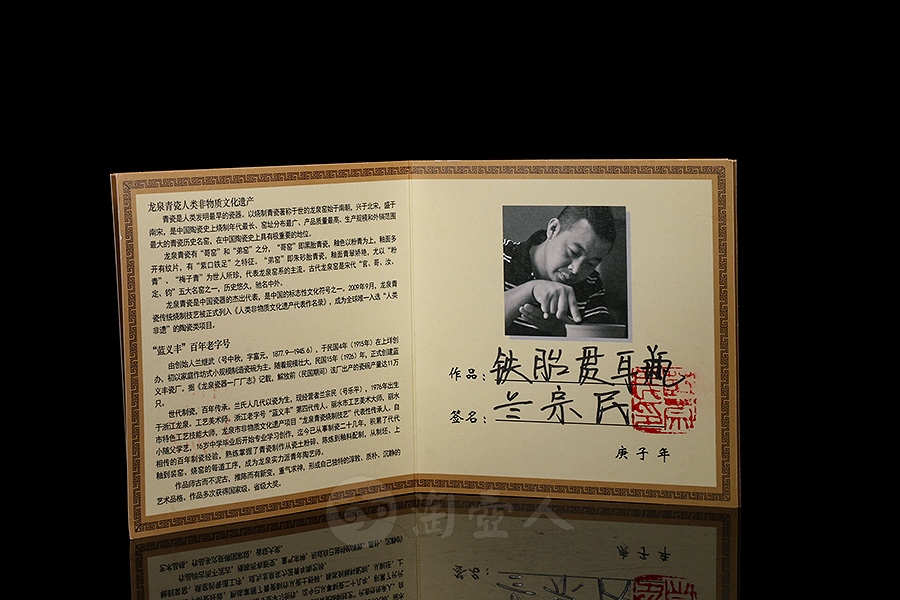 龙泉青瓷人类非物质文化遗产
青瓷是人类发明最早的瓷器。以烧制青瓷著称于世的龙泉窑始于南朝，兴于北宋，盛于
南宋，是中国陶瓷史上烧制年代最长、窑址分布最广、产品质量最高、生产规模和外销范围
最大的青瓷历史名窑，在中国陶瓷史上具有极重要的地位。
龙泉青瓷有“哥窑”和“弟窑”之分，“哥窑”即黑胎青瓷，釉色以粉青为上，釉面多
开有纹片，有“紫口铁足”之特征。“弟窑”即朱砂胎青瓷，釉面青翠娇艳，尤以“粉
青”、“梅子青”为世人所珍，代表龙泉窑系的主流。古代龙泉窑是宋代“官、哥、汝、
定、钧”五大名窑之一，历史悠久，驰名中外。
龙泉青瓷是中国瓷器的杰出代表，是中国的标志性文化符号之一。2009年9月，龙泉青
瓷传统烧制技艺被正式列入《人类非物质文化遗产代表作名录》，成为全球唯一入选“人类
非遗”的陶瓷类项目。
“蓝义丰”百年老字号
由创始人兰继武（号中秋，字富元，1877.9—1945.6），于民国4年（1915年）在上垟创
办，初以家庭作坊式小规模制造瓷碗为主。随着规模壮大，民国15年（1926）年，正式创建蓝
义丰瓷厂。据《龙泉瓷器一厂厂志》记载，解放前（民国期间）该厂出产的瓷碗产量达11万
只。
世代制瓷，百年传承。兰氏人几代以瓷为生，现经营者兰宗民（号乐平），1976年出生
于浙江龙泉。工艺美术师，浙江老字号“蓝义丰”第四代传人，丽水市工艺美术大师，丽水
市特色工艺技能大师，龙泉市非物质文化遗产项目“龙泉青瓷烧制技艺”代表性传承人。自
小随父学艺，16岁中学毕业后开始专业学习创作，迄今已从事制瓷二十几年，积累了代代
相传的百年制瓷经验，熟练掌握了青瓷制作从瓷土粉碎、陈炼到釉料配制，从制坯、上
釉到装窑、烧窑的每道工序，成为龙泉实力派青年陶艺师。
作品师古而不泥古，推陈而有新变，重气求神，形成自己独特的淳致、质朴、沉静的
艺术品格，作品多次获得国家级、省级大奖。
作品：铁胎贯耳瓶
签名：兰宗民
庚子年
淘壶人